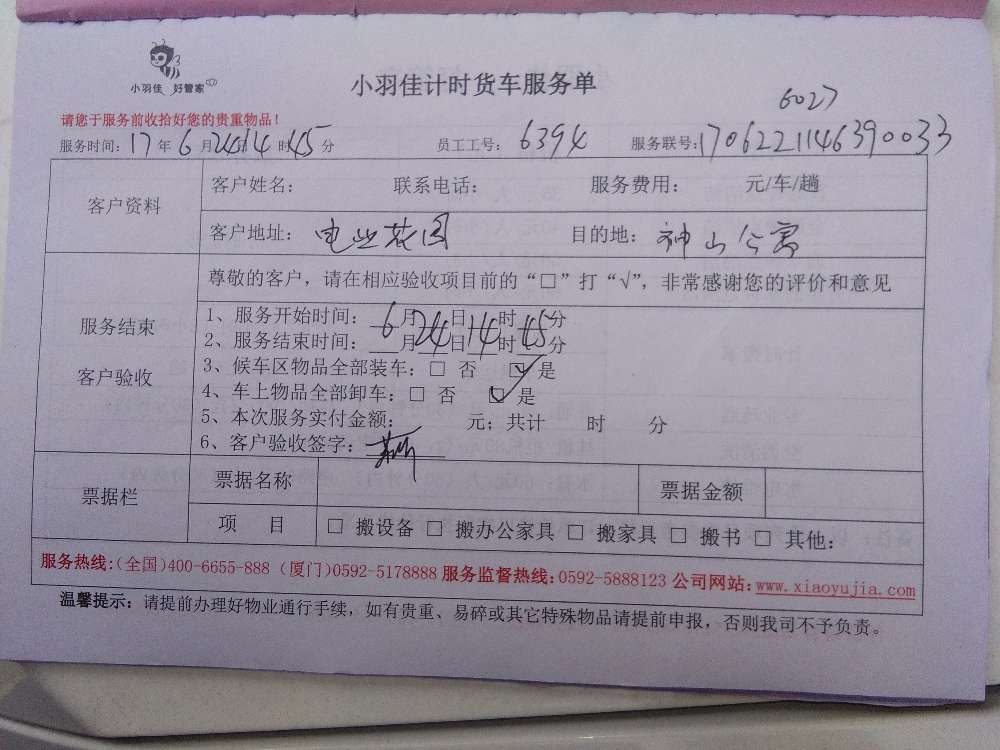 小羽佳 好管家
小羽佳计时货车服务单
6027
请您于服务前收拾好您的贵重物品！
服务时间：17年6月24日14时45分 员工工号：6394 服务联号：1706221146390033
客户资料
客户姓名： 联系电话： 服务费用： 元/车/趟
客户地址：电业花园 目的地：神山公寓
服务结束
客户验收
尊敬的客户，请在相应验收项目前的“□”打“√”，非常感谢您的评价和意见
1、服务开始时间：6月24日14时45分
2、服务结束时间：__月__日__时__分
3、候车区物品全部装车：□ 否 ☑ 是
4、车上物品全部卸车：□ 否 ☑ 是
5、本次服务实付金额： 元；共计 时 分
6、客户验收签字：
票据栏
票据名称 票据金额
项 目 □ 搬设备 □ 搬办公家具 □ 搬家具 □ 搬书 □ 其他：
服务热线：(全国)400-6655-888 (厦门)0592-5178888 服务监督热线：0592-5888123 公司网站：www.xiaoyujia.com
温馨提示：请提前办理好物业通行手续，如有贵重、易碎或其它特殊物品请提前申报，否则我司不予负责。